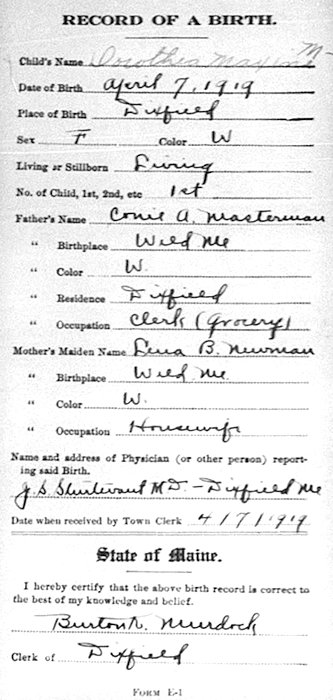 RECORD OF A BIRTH.
Child's Name Dorothea Maxine M
Date of Birth April 7, 1919
Place of Birth Dixfield
Sex F Color W
Living or Stillborn Living
No. of Child, 1st, 2nd, etc 1st
Father's Name Conie A. Masterman
" Birthplace Weld Me
" Color W.
" Residence Dixfield
" Occupation Clerk (Grocery)
Mother's Maiden Name Lena B. Newman
" Birthplace Weld Me.
" Color W.
" Occupation Housewife
Name and address of Physician (or other person) report-
ing said Birth.
J. S. Sturtevant M D. - Dixfield Me
Date when received by Town Clerk 4/7/1919
State of Maine.
I hereby certify that the above birth record is correct to
the best of my knowledge and belief.
Burton R. Murdock
Clerk of Dixfield
FORM E-1